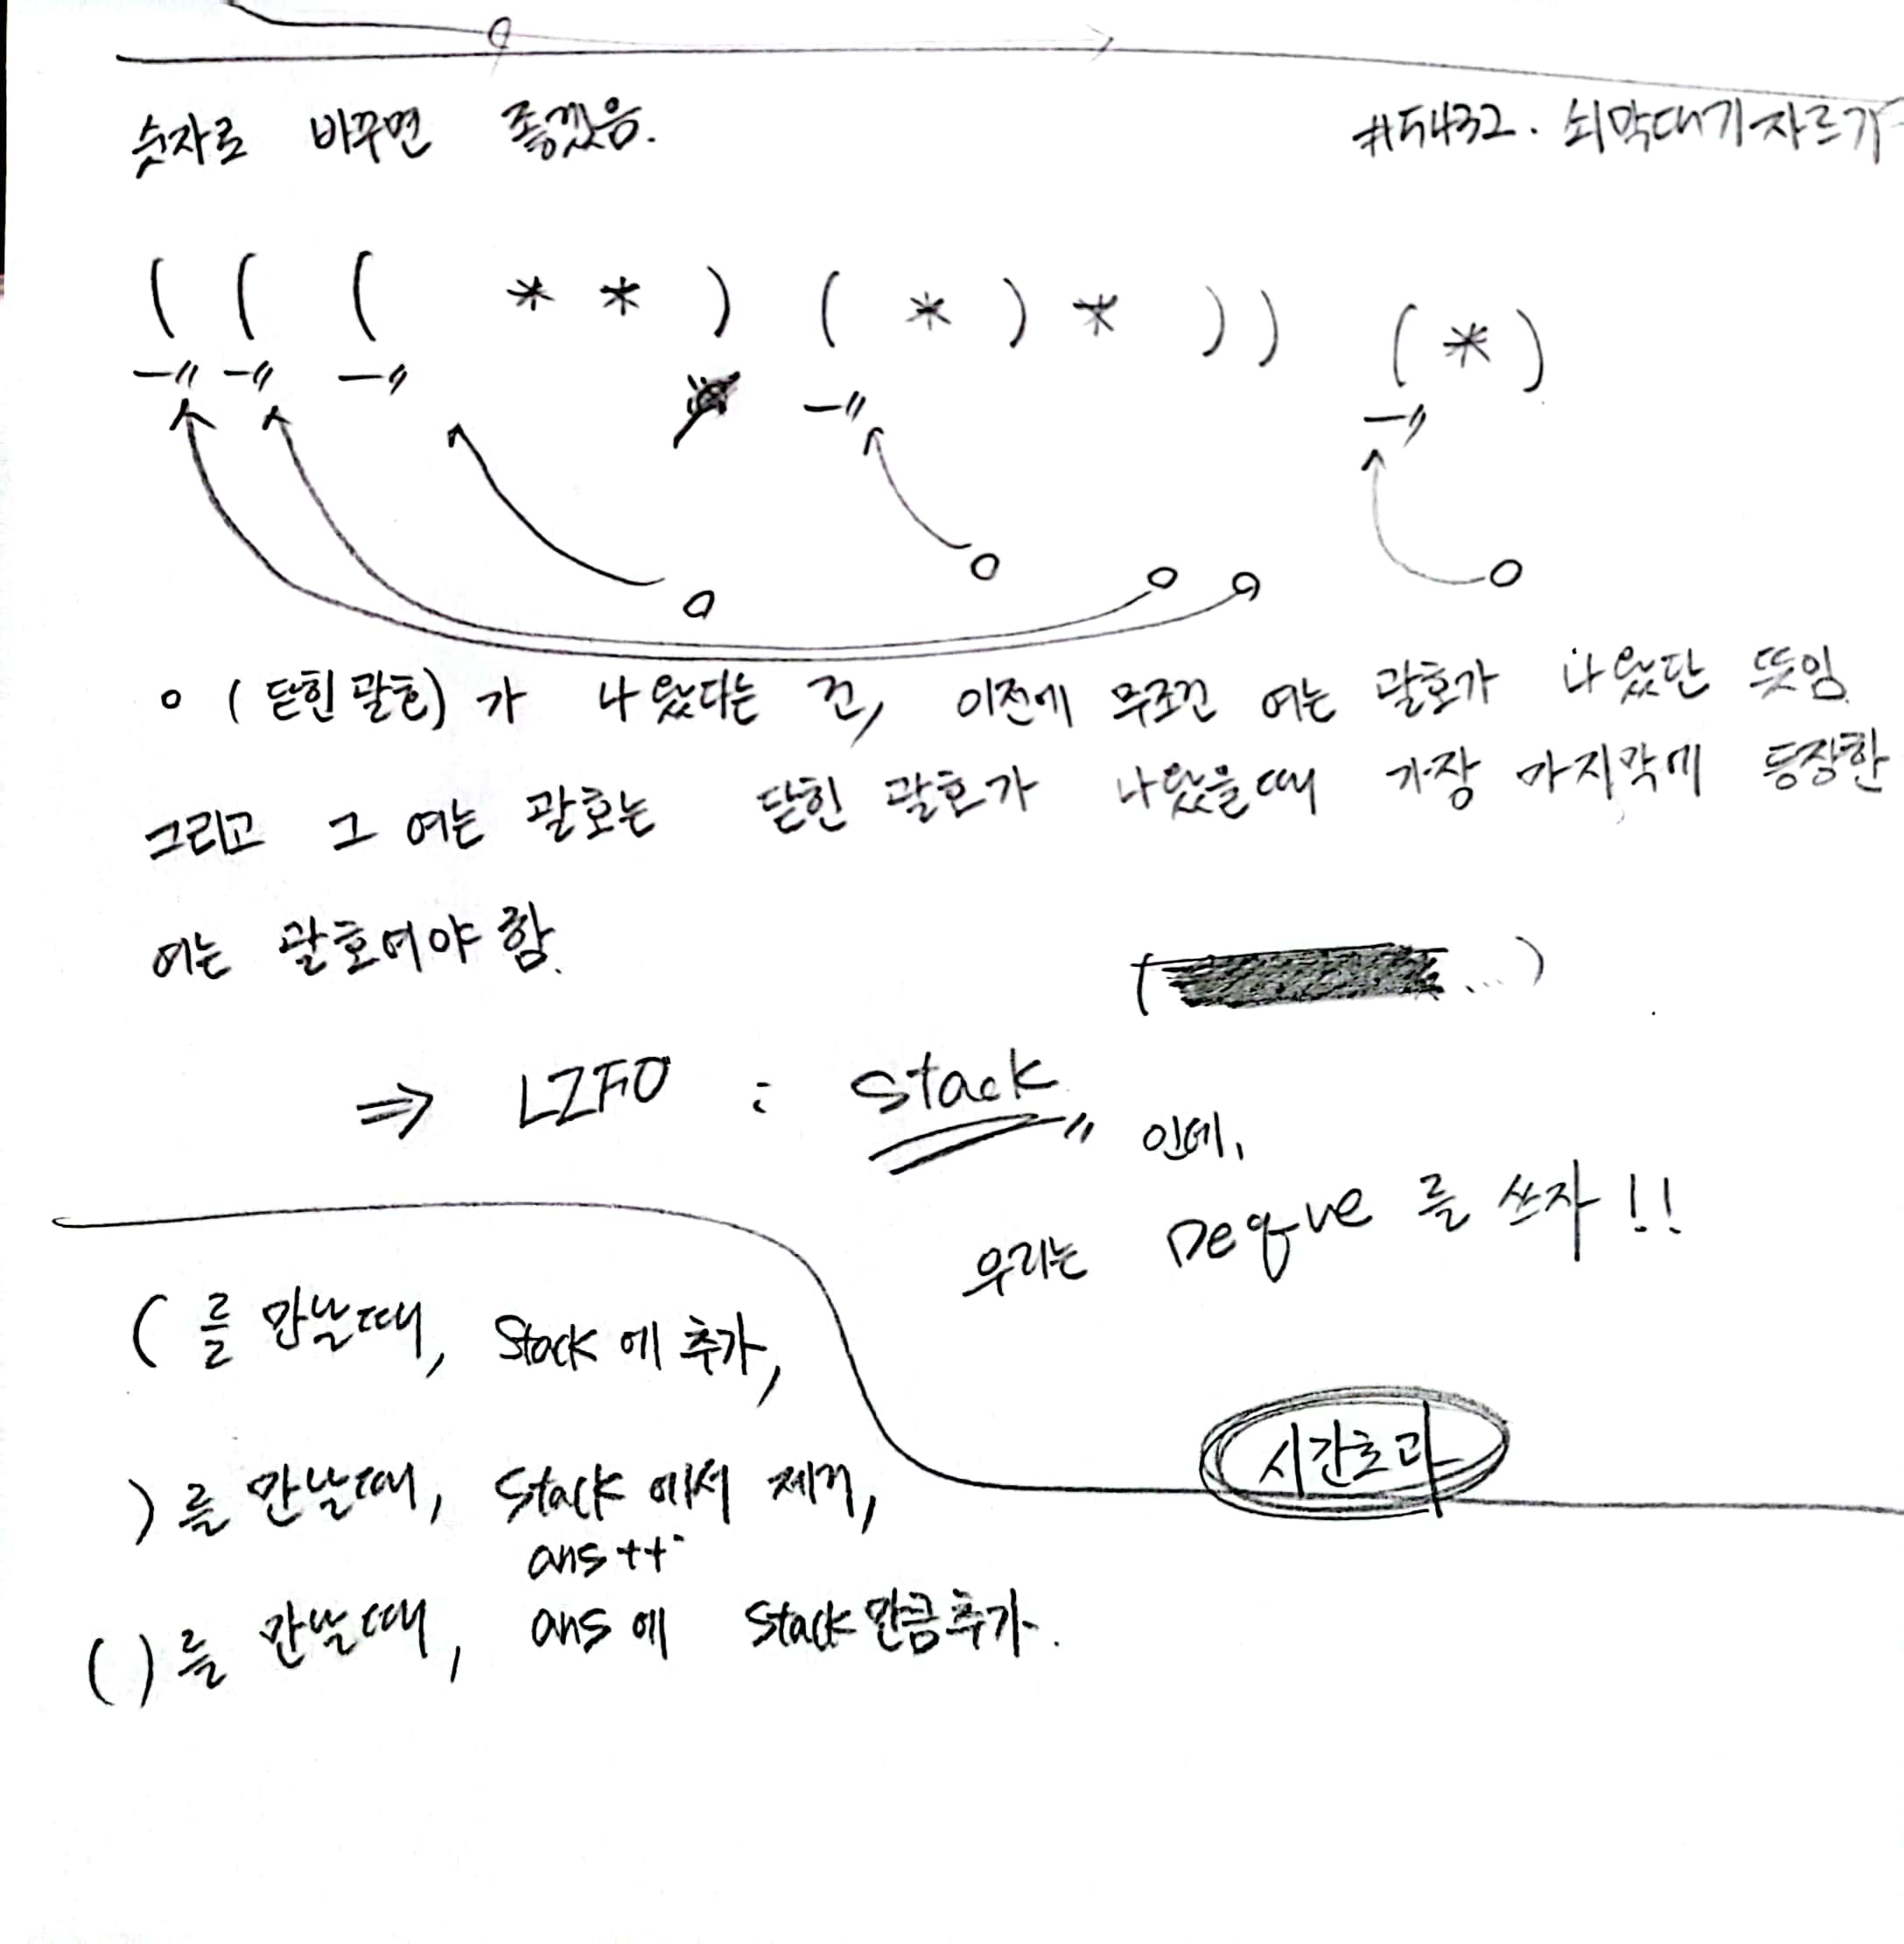 숫자로 바꾸면 좋겠음.
#5432. 쇠막대기 자르기
( ( ( * * ) ( * ) * ) ) ( * )
o (닫힌 괄호) 가 나왔다는 건, 이전에 무조건 여는 괄호가 나왔단 뜻임.
그리고 그 여는 괄호는 닫힌 괄호가 나왔을때 가장 마지막에 등장한
여는 괄호여야 함.
( ... )
⇒ LIFO : Stack 인데,
우리는 Deque 를 쓰자!!
( 를 만날때, Stack 에 추가,
) 를 만날때, Stack 에서 제거,
ans++
( ) 를 만날때, ans 에 Stack 만큼 추가.
시간초과